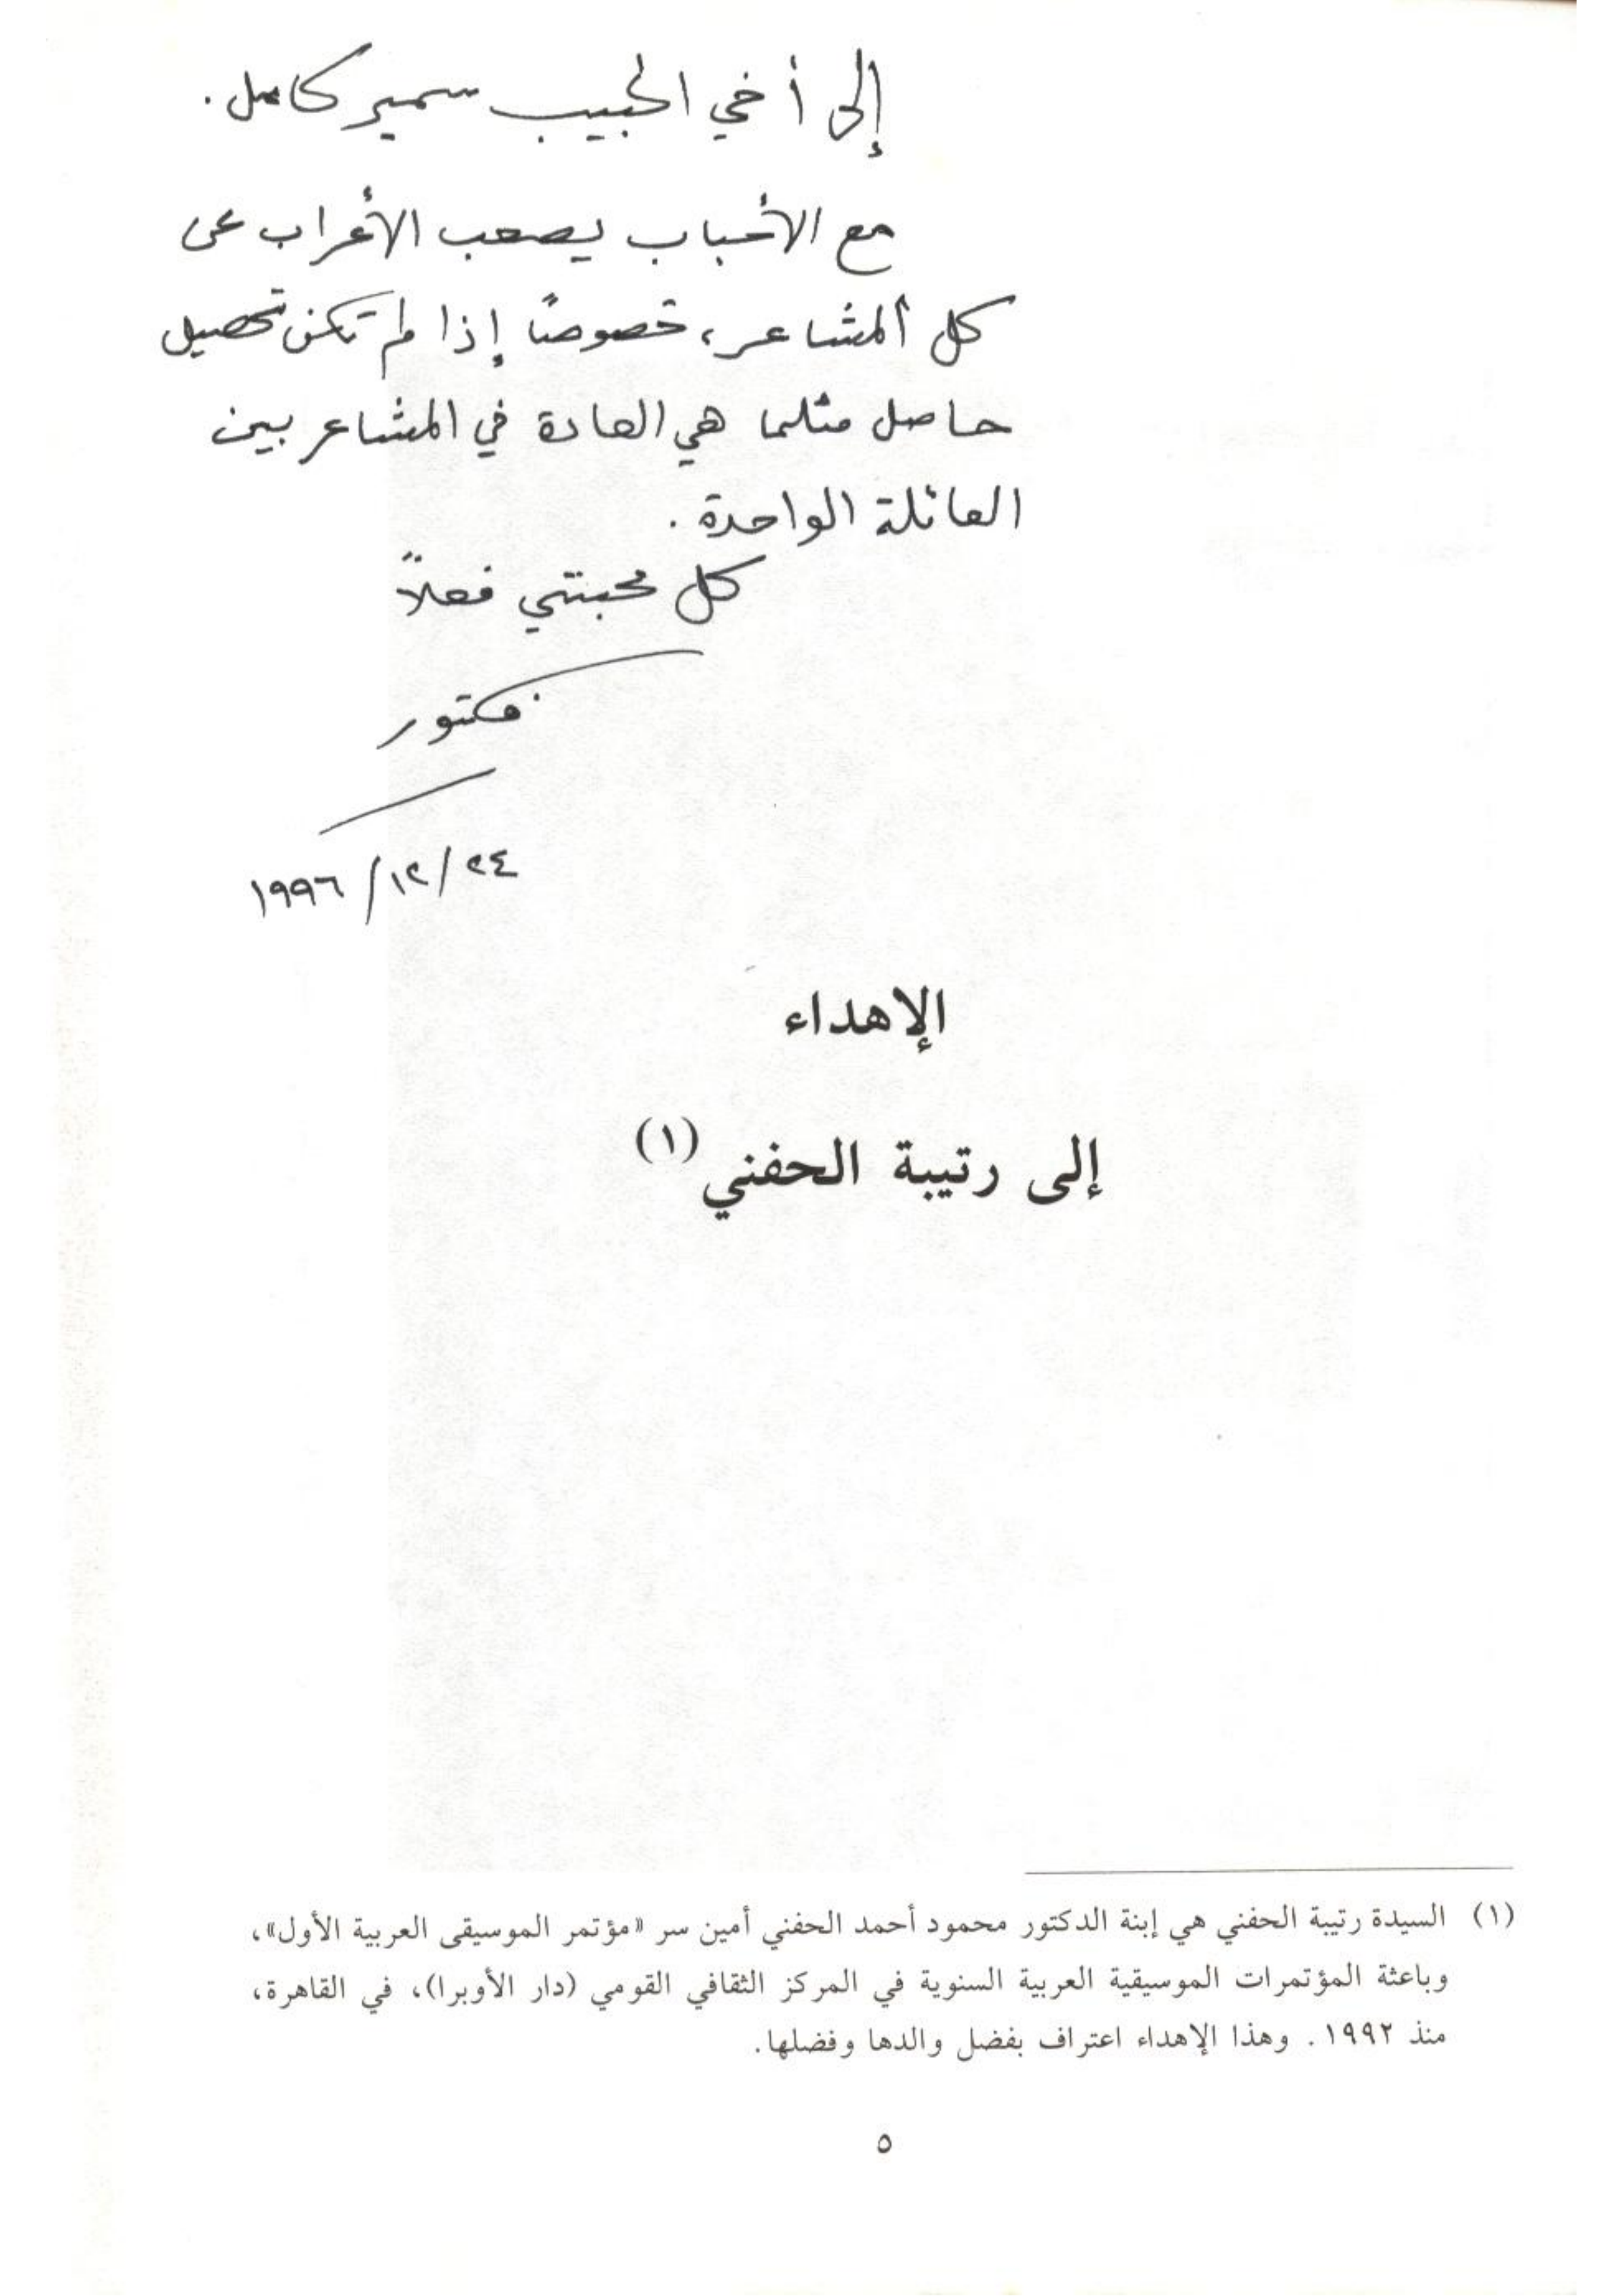 إلى أخي الحبيب سمير كامل.
مع الأحباب يصعب الأعراب عن
كل المشاعر، خصوصًا إذا لم تكن تحصيل
حاصل مثلما هي العادة في المشاعر بين
العائلة الواحدة.
كل محبتي فعلاً
فكتور
٢٤/١٢/١٩٩٦
الإهداء
إلى رتيبة الحفني (١)
(١) السيدة رتيبة الحفني هي إبنة الدكتور محمود أحمد الحفني أمين سر «مؤتمر الموسيقى العربية الأول»،
وباعثة المؤتمرات الموسيقية العربية السنوية في المركز الثقافي القومي (دار الأوبرا)، في القاهرة،
منذ ١٩٩٢. وهذا الإهداء اعتراف بفضل والدها وفضلها.
٥